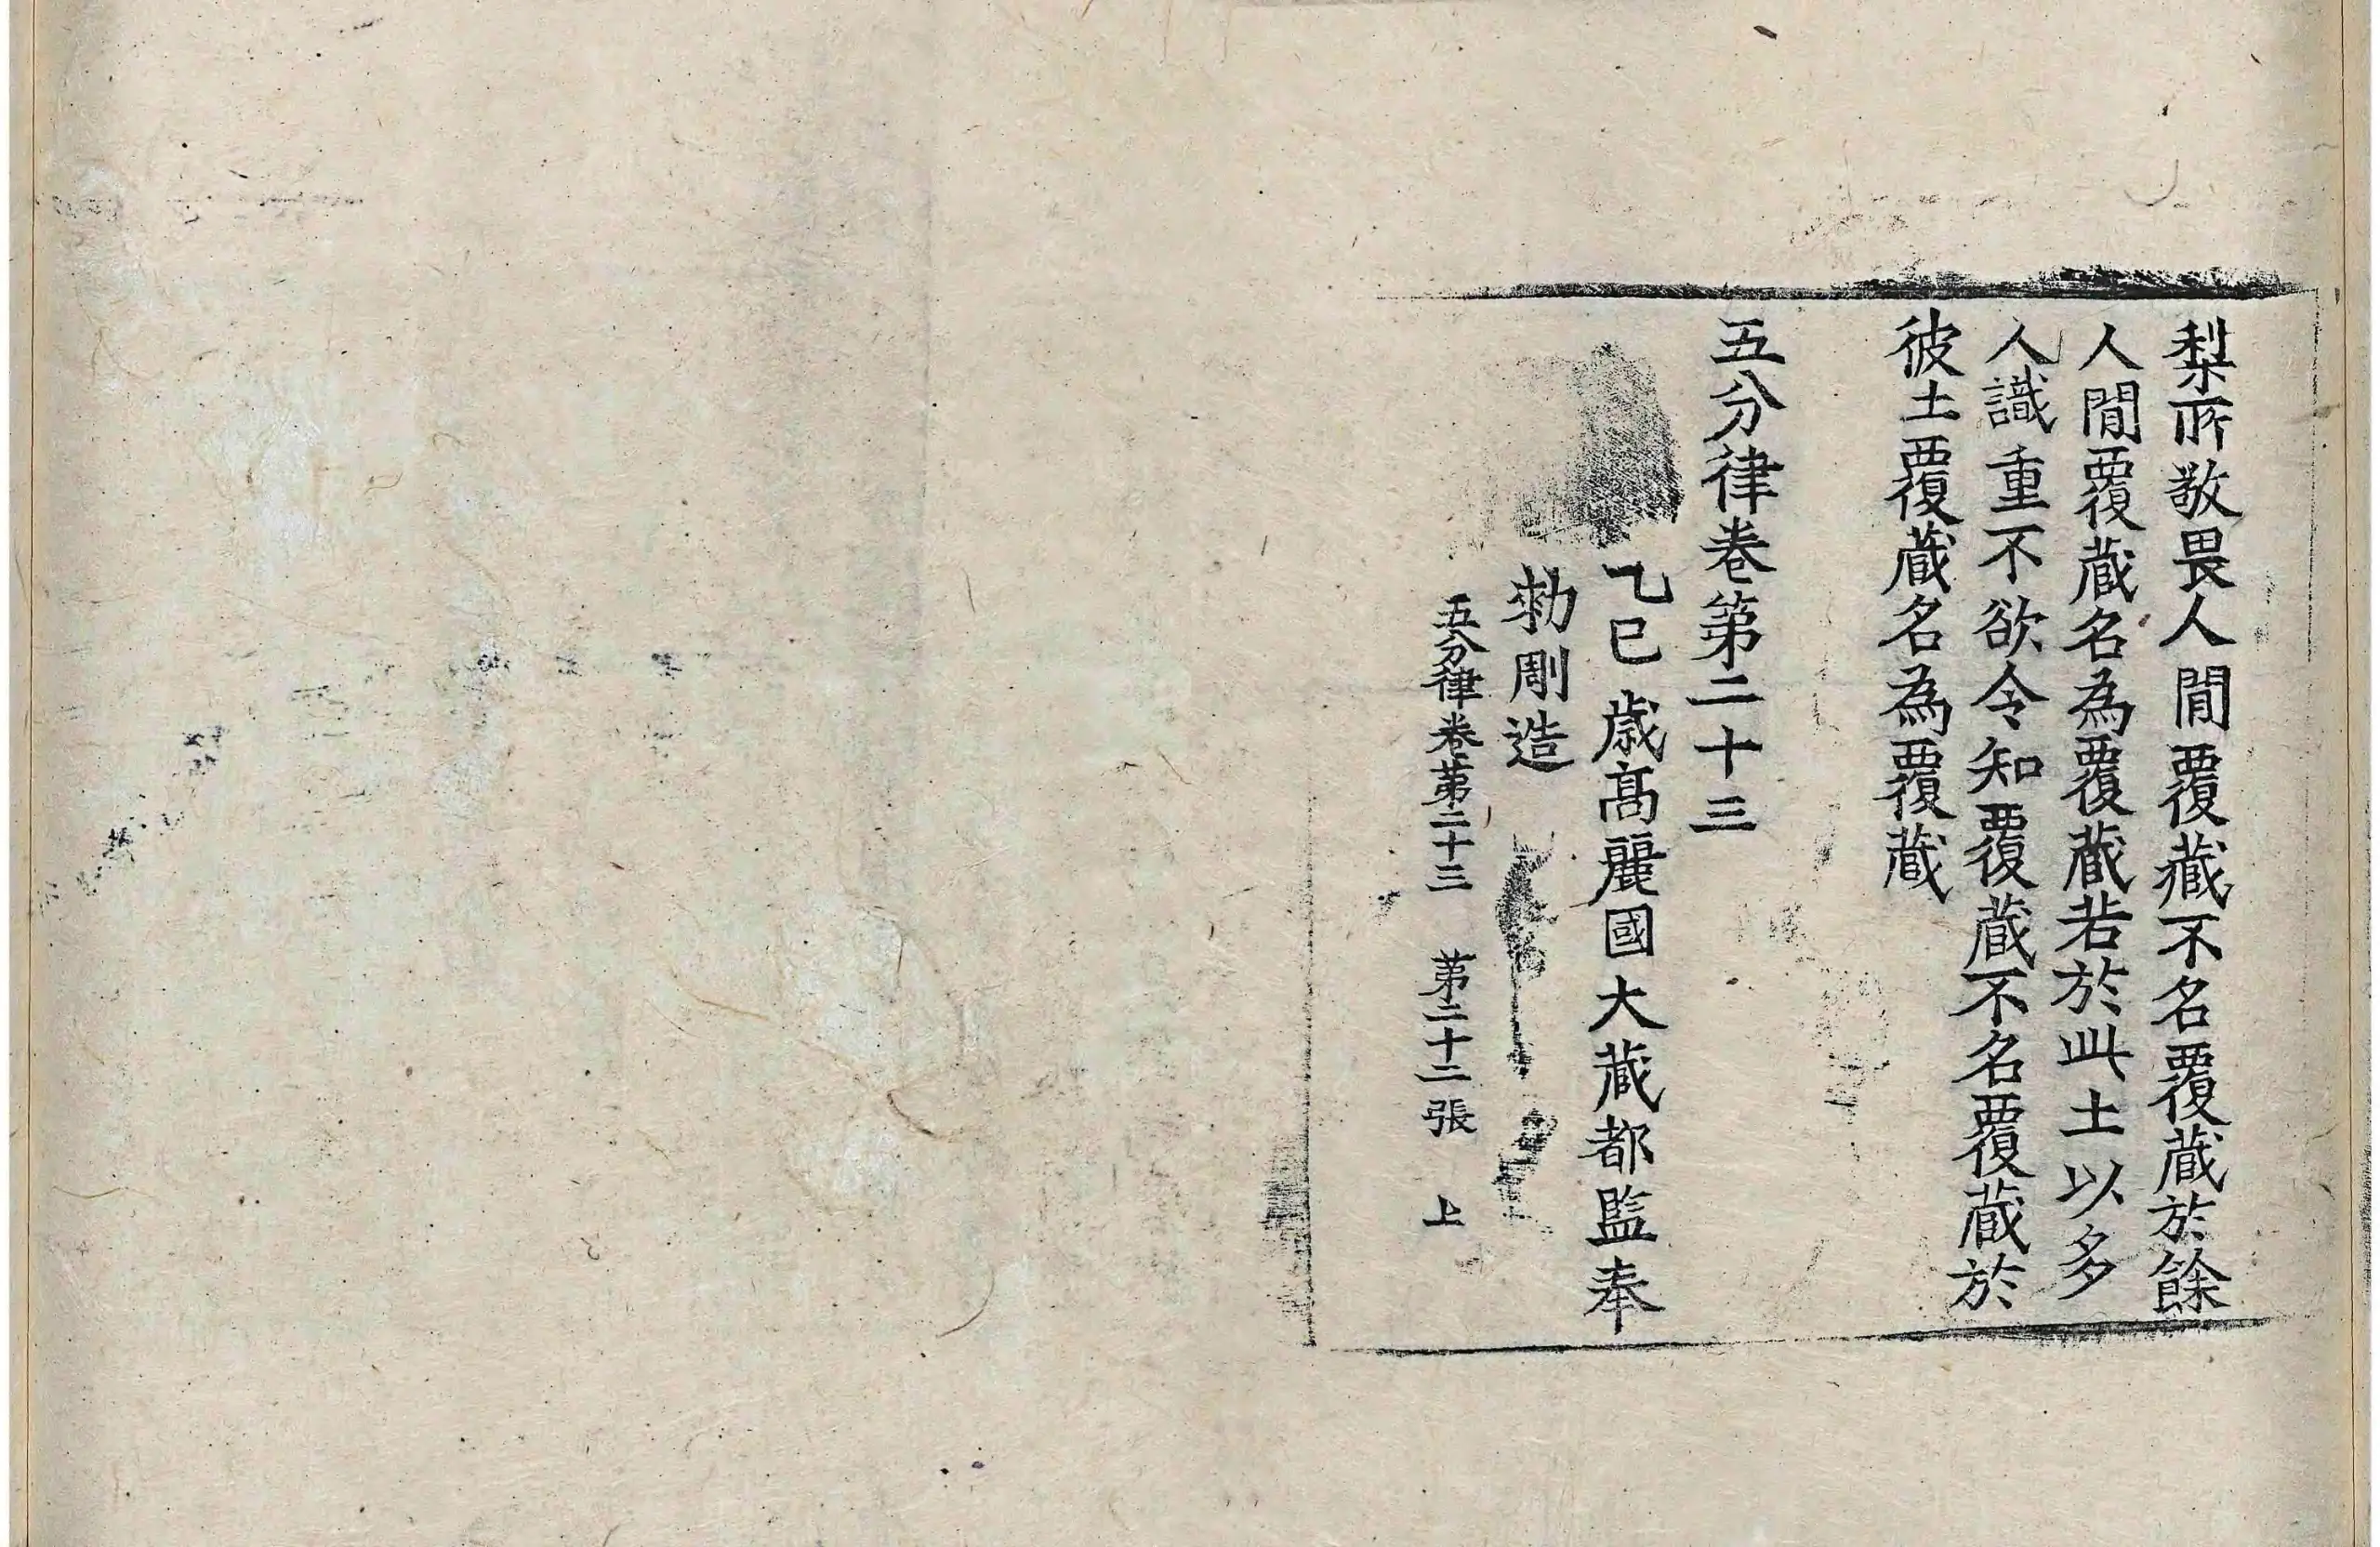 梨所敬畏人閒覆藏不名覆藏於餘
人閒覆藏名為覆藏若於此土以多
人識重不欲令知覆藏不名覆藏於
彼土覆藏名為覆藏
五分律卷第二十三
乙巳歲髙麗國大藏都監奉
勑彫造
五分律卷第二十三 第二十二張 上